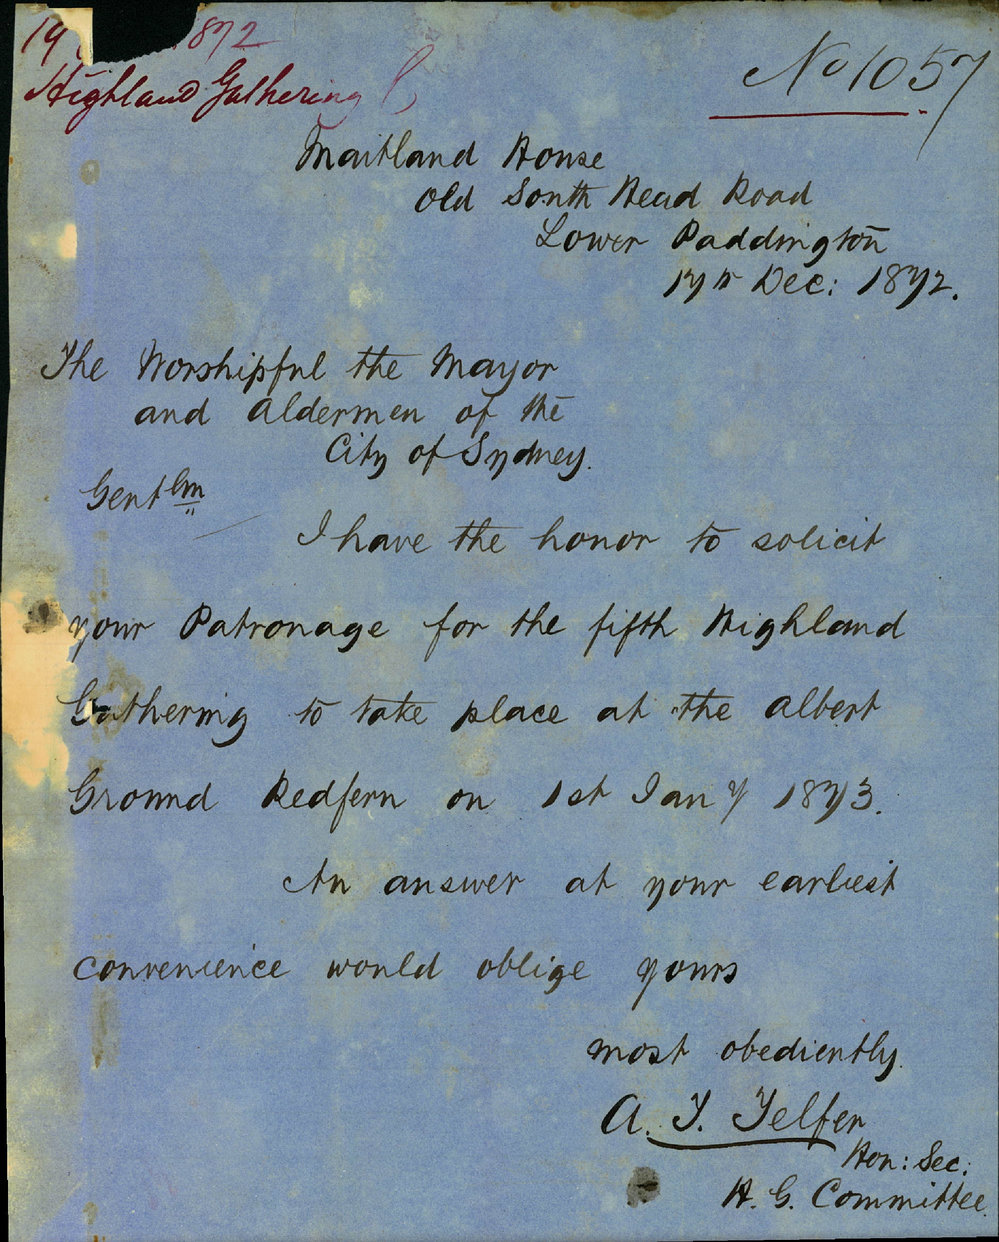 19 1872
Highland Gathering
No 1057
Maitland House
Old South Head Road
Lower Paddington
17th Dec: 1872.
The Worshipful the Mayor
and Aldermen of the
City of Sydney.
Gentlm
I have the honor to solicit
your Patronage for the fifth Highland
Gathering to take place at the Albert
Ground Redfern on 1st Jany 1873.
An answer at your earliest
convenience would oblige yours
most obediently.
A. T. Telfer
Hon: Sec:
H. G. Committee.